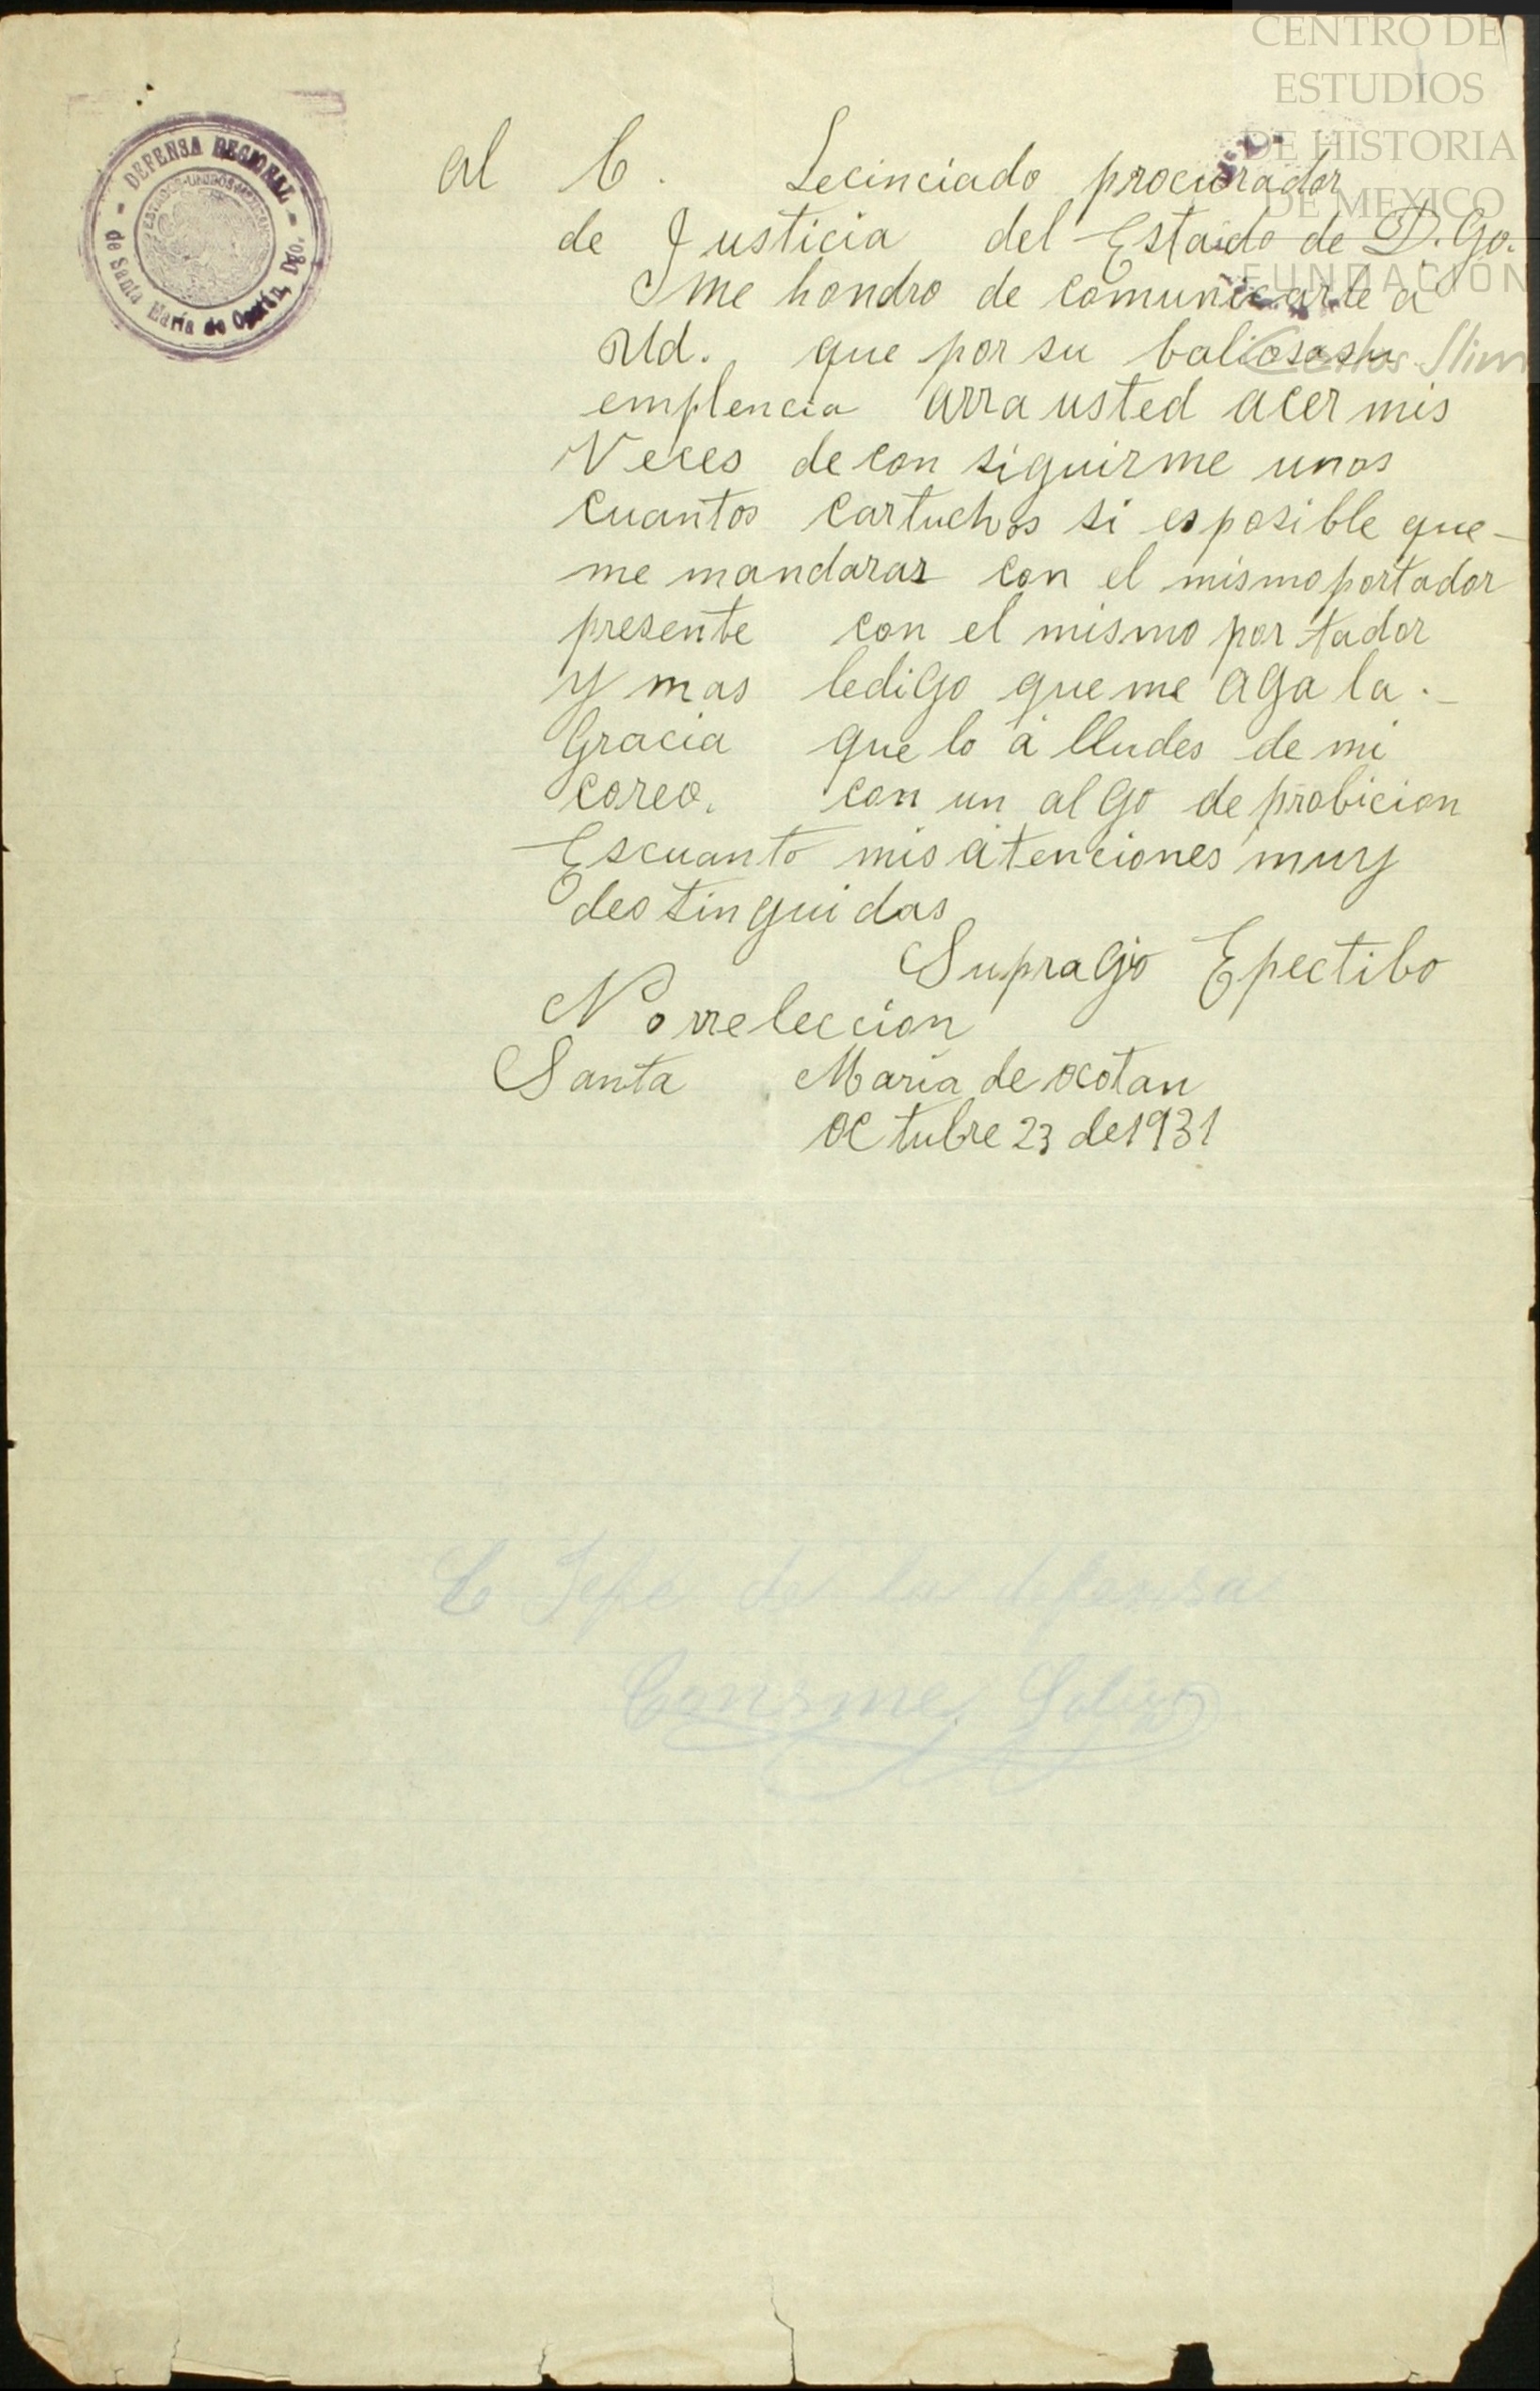 CENTRO DE
ESTUDIOS
DE HISTORIA
DE MEXICO
FUNDACIÓN
Carlos Slim
DEFENSA REGIONAL
de Santa María de Ocotán, Dgo.
ESTADOS UNIDOS MEXICANOS
Al C. Lecinciado procurador
de Justicia del Estaido de D.Go.
Me hondro de comunicarle a
Ud. que por su baliosa su
emplencia arra usted acer mis
Veces de con siguirme unos
cuantos cartuchos si es posible que-
me mandarar con el mismo portador
presente con el mismo por tador
y mas ledigo que me aga la.-
Gracia que lo a lludes de mi
coreo. con un al go de probicion
Escuanto mis atenciones muy
destinguidas
Supragio Epectibo
Norreleccion
Santa Maria de ocotan
octubre 23 de 1931
C Jefe de la defensa
Consme Soliz